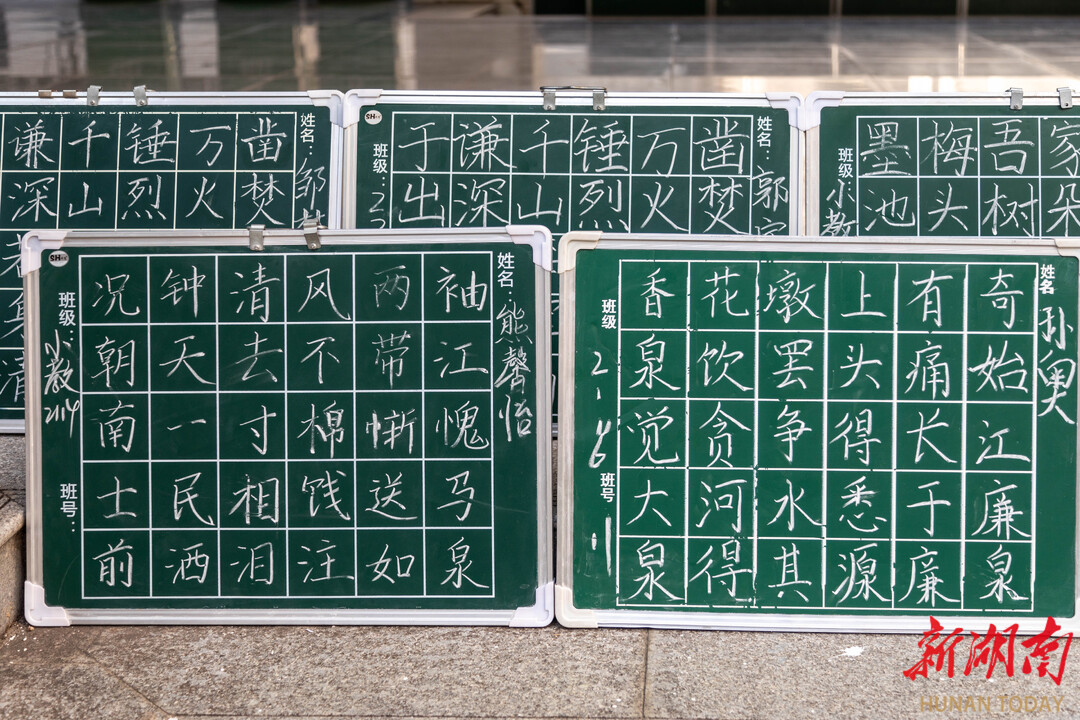 谦千锤万凿
深山烈火焚
姓名:邹
SH
班级:
于谦千锤万凿
出深山烈火焚
姓名:郭
班级:小教
墨梅吾家
池头树朵
清
SH
班级:小教214
班号:
况钟清风两袖
朝天去不带江
南一寸棉惭愧
士民相饯送马
前洒泪注如泉
姓名:熊馨怡
班级 2.6
班号
香花墩上有奇
泉饮罢头痛始
觉贪争得长江
大河水悉于廉
泉得其源廉泉
姓名 孙奥
新湖南
HUNAN TODAY